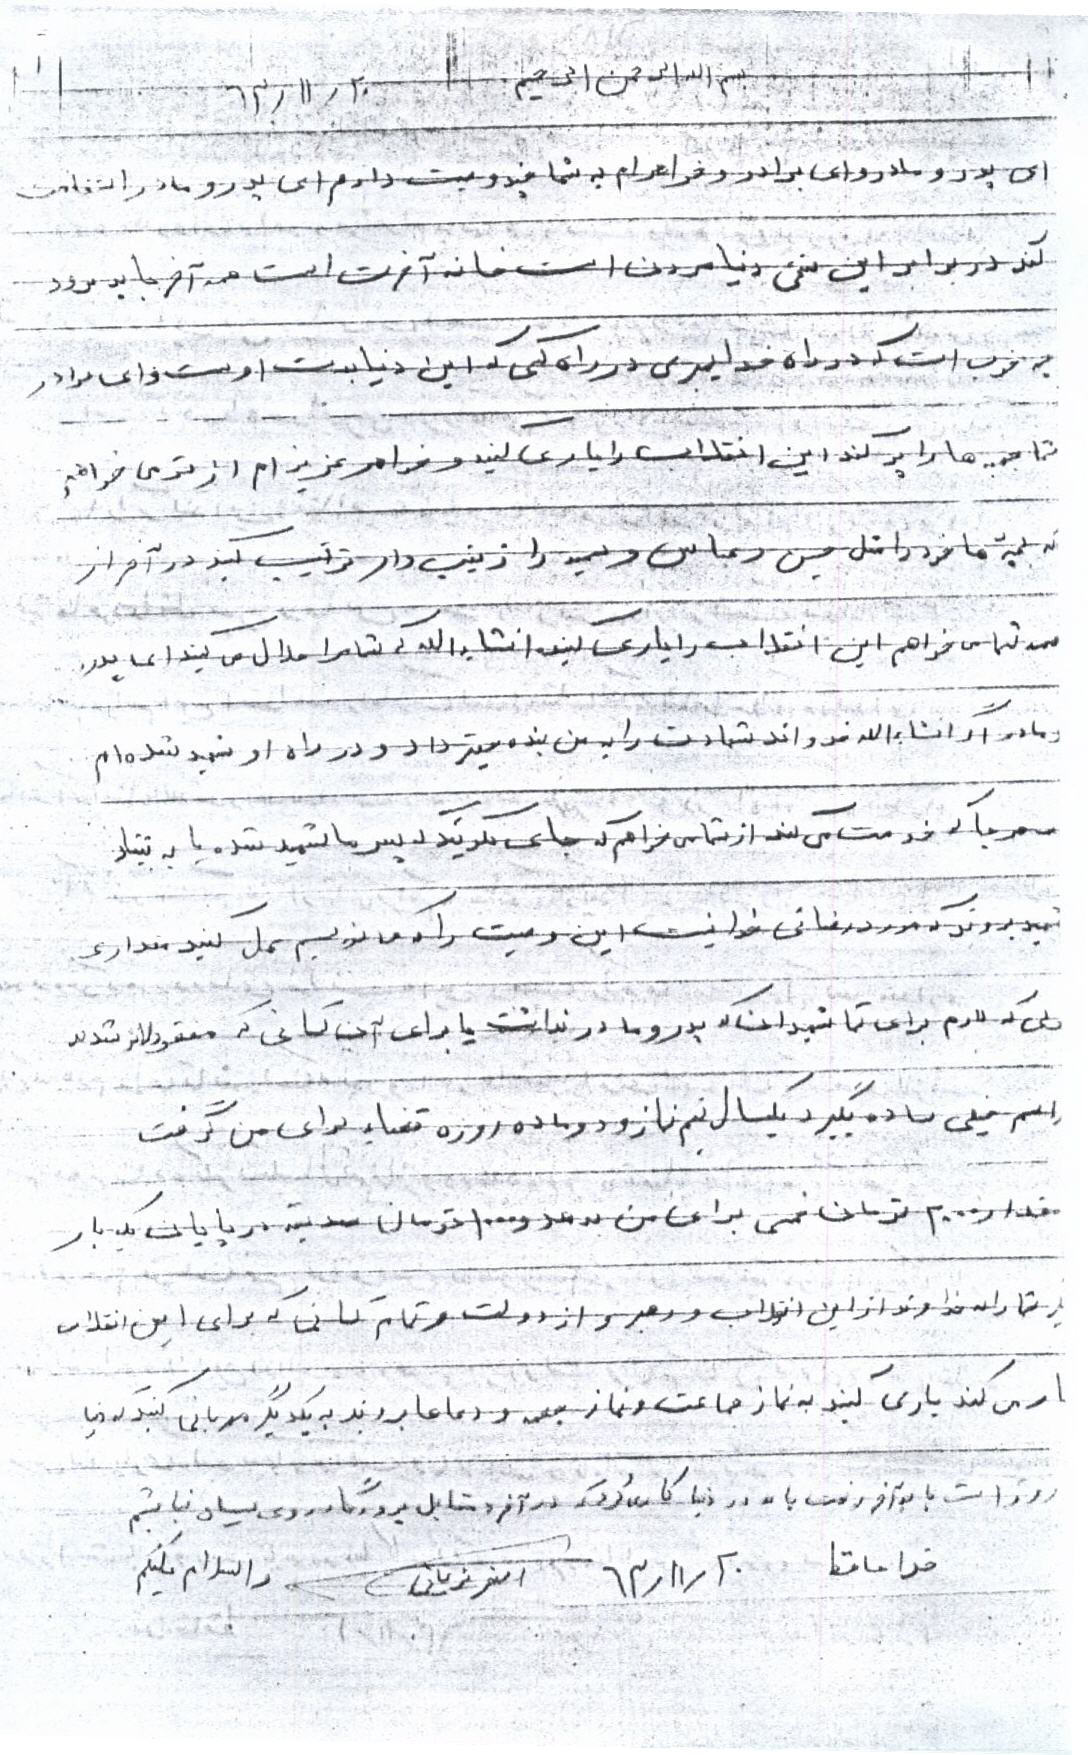 بسم الله الرحمن الرحیم ۶۳/۱۱/۲۰
ای پدر و مادر و ای برادر و خواهرام به شما چند وصیت دارم ای پدر و مادر استقامت
کند در برابر این سختی دنیا مردن است خانه آخرت است همه آخر باید برود
چه خوب است که در راه خدا بمیری در راه کسی که این دنیا بدست اوست و ای برادر
شما جبهه ها را پر کند این انقلاب را یاری کنید و خواهر عزیز ام از تو می خواهم
که بچه ها خود را مثل حسین و عباس و سمیه را زینب وار تربیت کنید در آخر از
همه شما می خواهم این انقلاب را یاری کنید انشاءالله که شما مرا حلال می کنید ای پدر
و مادر اگر انشاءالله خداوند شهادت را به من بنده میسر داد و در راه او شهید شده ام
هر جا که خدمت می کند از شما می خواهم که جای نگویند که پسر ما شهید شده یا به بنیاد
شهید بروند که مورد رضائی خدا نیست این وصیت را که می نویسم عمل کنید مقداری
پولی که دارم برای شهیدان که پدر و مادر نداشت یا برای آن کسانی که مفقودالاثر شدند
مراسم خیلی ساده بگیرد یکسال نیم نماز و دو ماده روزه قضاء برای من گرفت
مقدار تومان خمس برای من بدهد و ۱۰۰۰ تومان در پایان یک بار
دیگر شما را به خداوند از این انقلاب و رهبر و از دولت و تمام کسانی که برای این انقلاب
کار می کند یاری کنید به نماز جماعت و نماز جمعه و دعاها بروند به یکدیگر مهربانی کنید که دنیا
روز است باید آخر رفت باید در دنیا کاری کرد که در آخرت مقابل پروردگار روی سیاه نباشیم
خدا حافظ ۶۳/۱۱/۲۰ والسلام علیکم